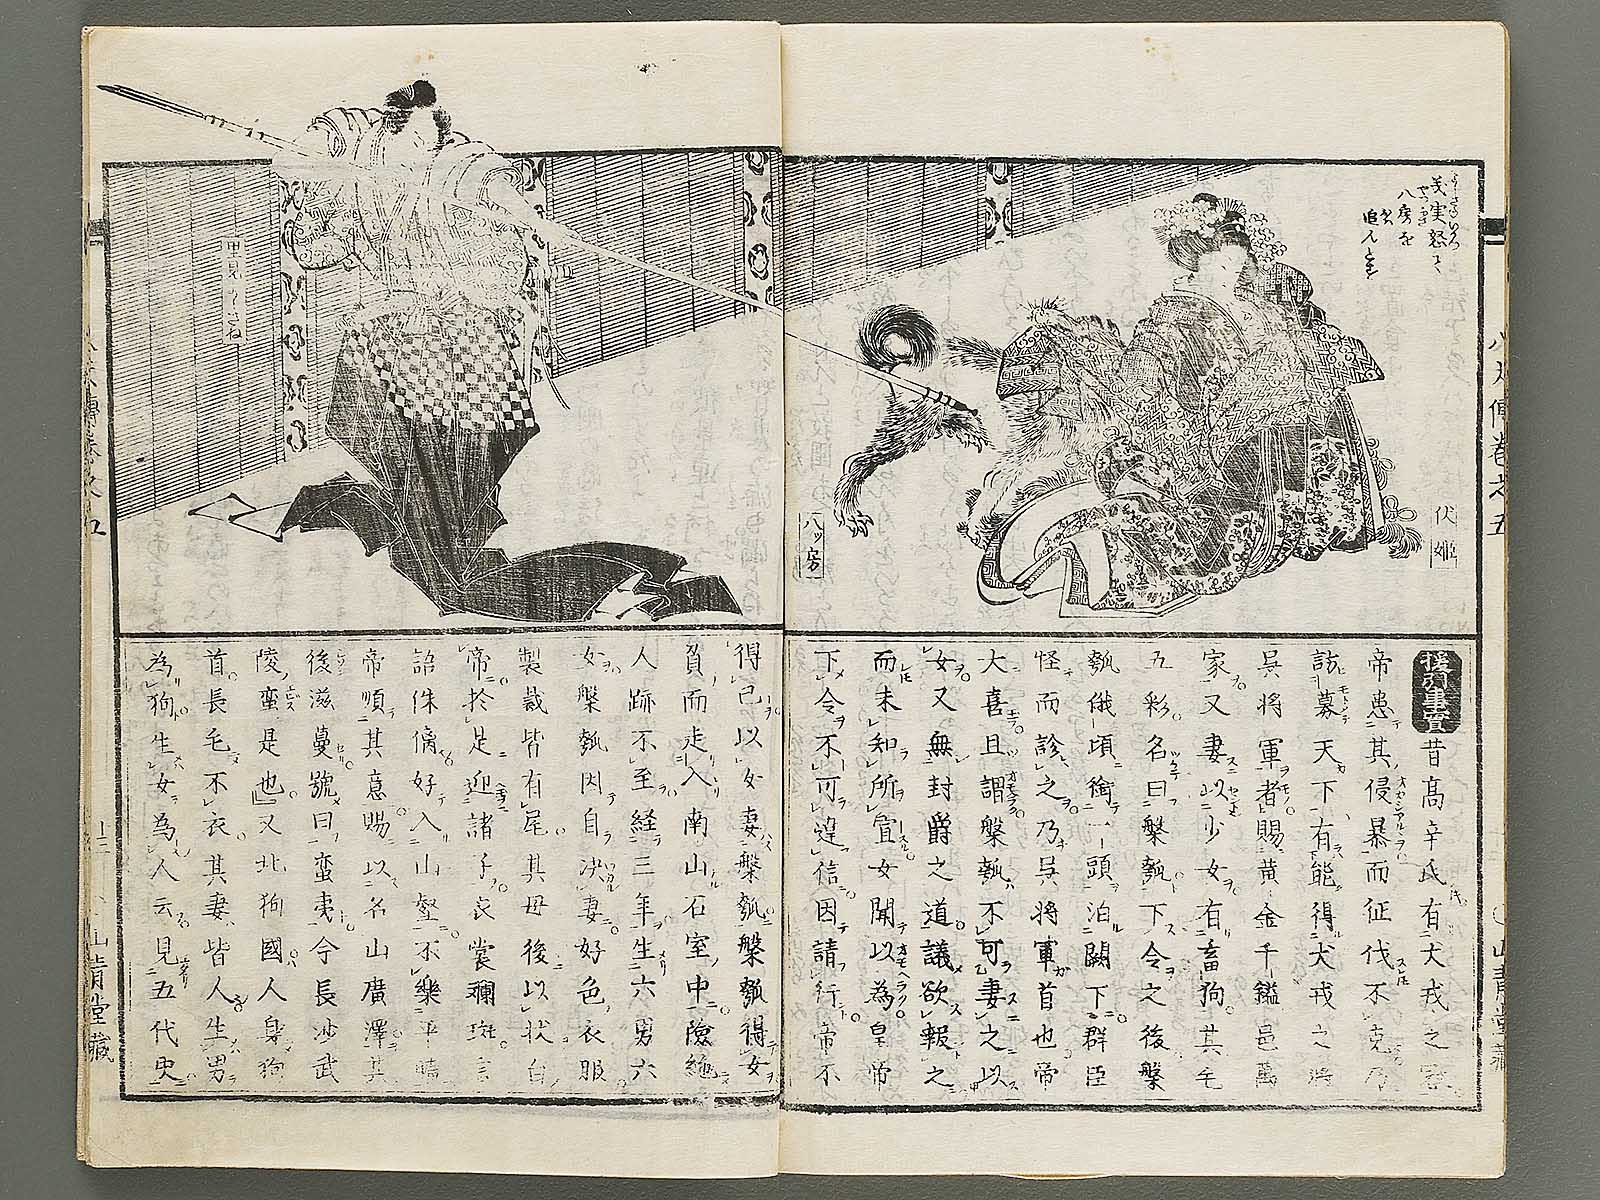 義実怒て
八房を
追んと
伏姫
八ッ房
八犬傳巻之五
山青堂藏
昔高辛氏有犬戎之寇
帝患其侵暴而征伐不克乃
訪募天下有能得犬戎之將
呉将軍者賜黄金千鎰邑萬
家又妻以少女有畜狗其毛
五彩名曰槃瓠下令之後槃
瓠俄頃銜一頭泊闕下群臣
怪而診之乃呉将軍首也帝
大喜且謂槃瓠不可妻之以
女又無封爵之道議欲報之
而未知所宜女聞以為皇帝
下令不可違信因請行帝不
得已以女妻槃瓠槃瓠得女
負而走入南山石室中險絶
人跡不至経三年生六男六
女槃瓠因自决妻好色衣服
製裁皆有尾其母後以状白
帝於是迎諸子衣裳斓斑言
語侏𠌯好入山壑不樂平曠
帝順其意賜以名山廣澤其
後滋蔓號曰蛮夷今長沙武
陵蛮是也又北狗國人身狗
首長毛不衣其妻皆人生男
為狗生女為人云見五代史
山青堂藏